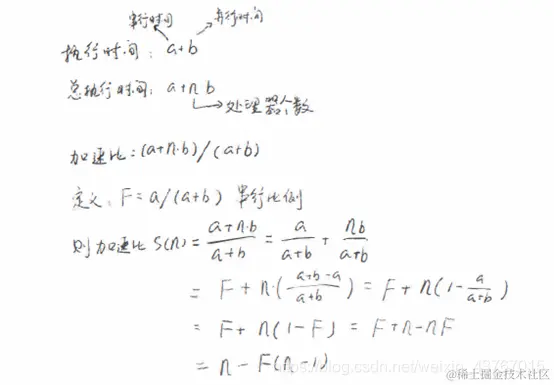 串行时间 并行时间
执行时间: a+b
总执行时间: a+nb
处理器个数
加速比: (a+n·b)/(a+b)
定义: F=a/(a+b) 串行比例
则加速比 S(n) = \frac{a+n·b}{a+b} = \frac{a}{a+b} + \frac{nb}{a+b}
= F + n·(\frac{a+b-a}{a+b}) = F + n(1-\frac{a}{a+b})
= F + n(1-F) = F+n-nF
= n-F(n-1)
@稀土掘金技术社区